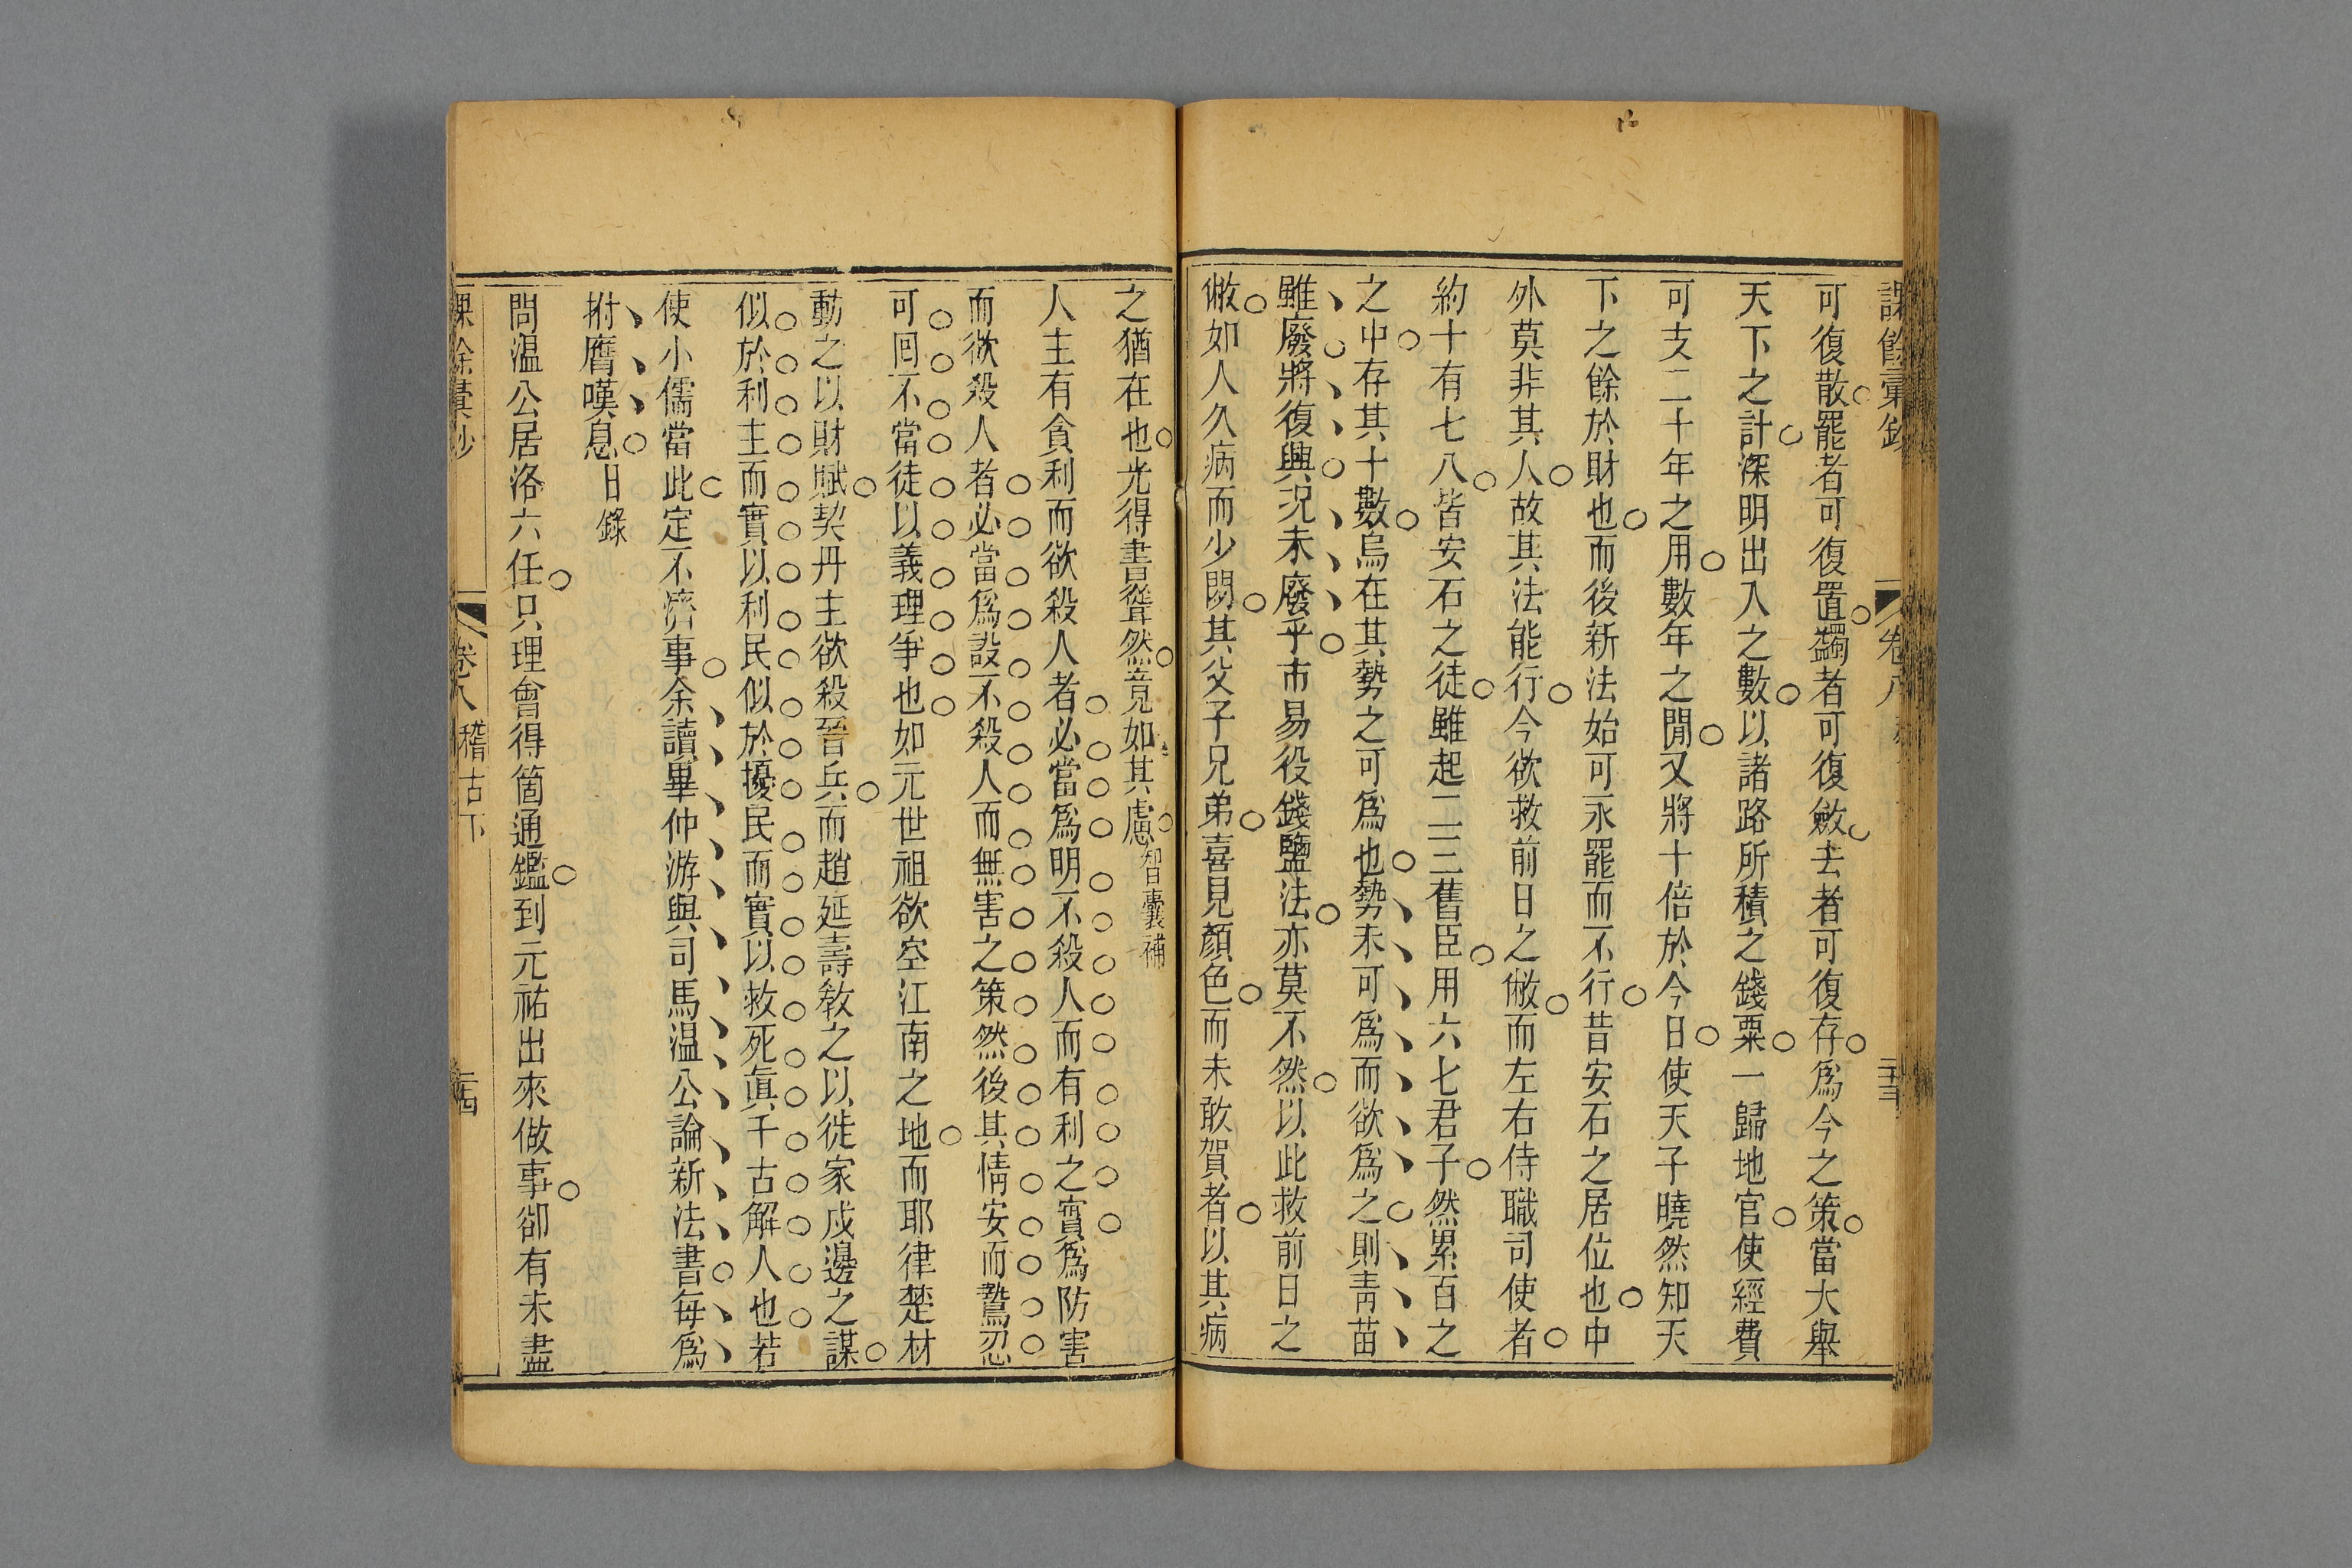 課餘彙鈔 卷八 二十三
可復散罷者可復置蠲者可復斂去者可復存為今之策當大舉
天下之計深明出入之數以諸路所積之錢粟一歸地官使經費
可支二十年之用數年之閒又將十倍於今日使天子曉然知天
下之餘於財也而後新法始可永罷而不行昔安石之居位也中
外莫非其人故其法能行今欲救前日之敝而左右侍職司使者
約十有七八皆安石之徒雖起二三舊臣用六七君子然累百之
之中存其十數烏在其勢之可為也勢未可為而欲為之則青苗
雖廢將復興況未廢乎市易役錢鹽法亦莫不然以此救前日之
敝如人久病而少閒其父子兄弟喜見顏色而未敢賀者以其病
之猶在也光得書聳然竟如其慮智囊補
人主有貪利而欲殺人者必當為明不殺人而有利之實為防害
而欲殺人者必當為設不殺人而無害之策然後其情安而鷙忍
可回不當徒以義理爭也如元世祖欲空江南之地而耶律楚材
動之以財賦契丹主欲殺晉兵而趙延壽教之以徙家戍邊之謀
似於利主而實以利民似於擾民而實以救死真千古解人也若
使小儒當此定不濟事余讀畢仲游與司馬温公論新法書每為
拊膺嘆息日錄
問温公居洛六任只理會得箇通鑑到元祐出來做事卻有未盡
課餘彙鈔 卷八 稽古下 二十四